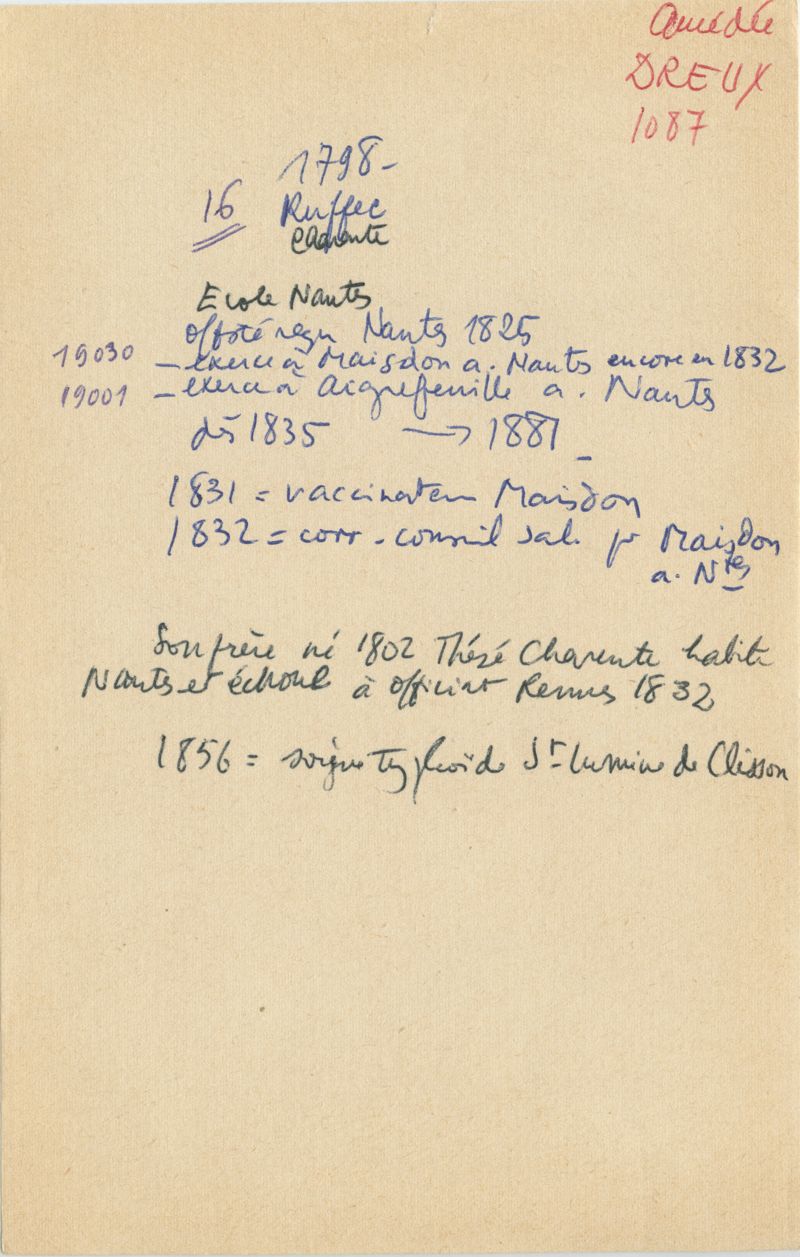 Amédée
DREUX
1087
1798 -
16 Ruffec
Charente
Ecole Nantes
offsté reçu Nantes 1825
19030 - exerce à Maisdon a. Nantes encore en 1832
19001 - exerce à Aigrefeuille a. Nantes
dès 1835 → 1881
1831 = vaccinateur Maisdon
1832 = corr - conseil sal. pr Maisdon
a. Ntes
Son frère né 1802 Thézé Charente habite
Nantes et échoué à officiat Rennes 1832
1856 = soigne typhoïde St-Lumine de Clisson